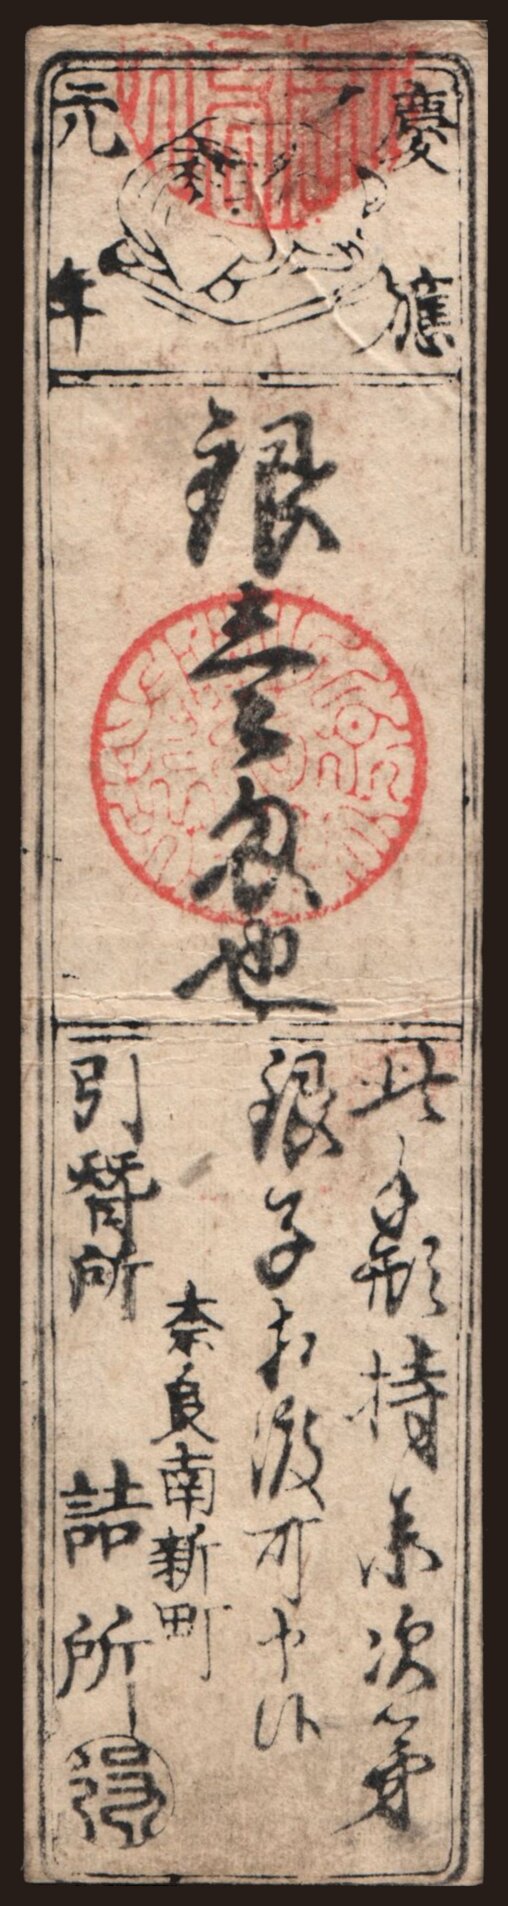 慶應
元年
銀壹匁也
此手形持来次第
銀子相渡可申候
奈良南新町
引替所
詰所